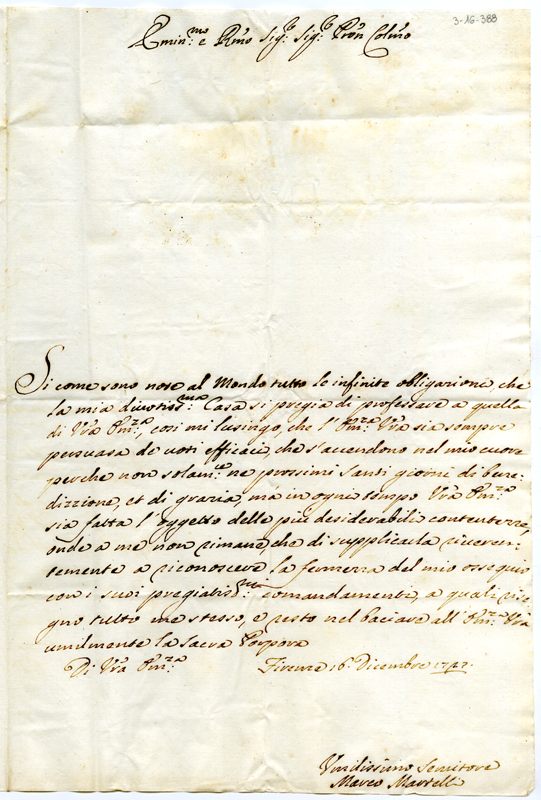 3-16-388
Emin.mo e Rmo Sig.r Sig.r Pron Colmo
Si come sono note al Mondo tutto le infinite obligazioni, che
la mia divotiss.ma Casa si pregia di professare a quella
di Vra Em.za, così mi lusingo, che l'Em.za Vra sia sempre
persuasa de voti efficaci, che s'accendono nel mio cuore
perche non solam.te ne prossimi Santi giorni di bene-
dizzione, et di grazia, ma in ogne tempo Vra Em.za
sia fatta l'oggetto delle più desiderabili contentezze,
onde a me non rimane, che di supplicarla riveren-
temente a riconoscere la fermezza del mio ossequio
con i suoi pregiatis.mi comandamenti, a quali
gno tutto me stesso, e resto nel baciare all'Em.za Vra
umilmente la Sacra Porpora
Di Vra Em.za Firenze 16 Dicembre
Umilissimo Servitore
Marco Martelli